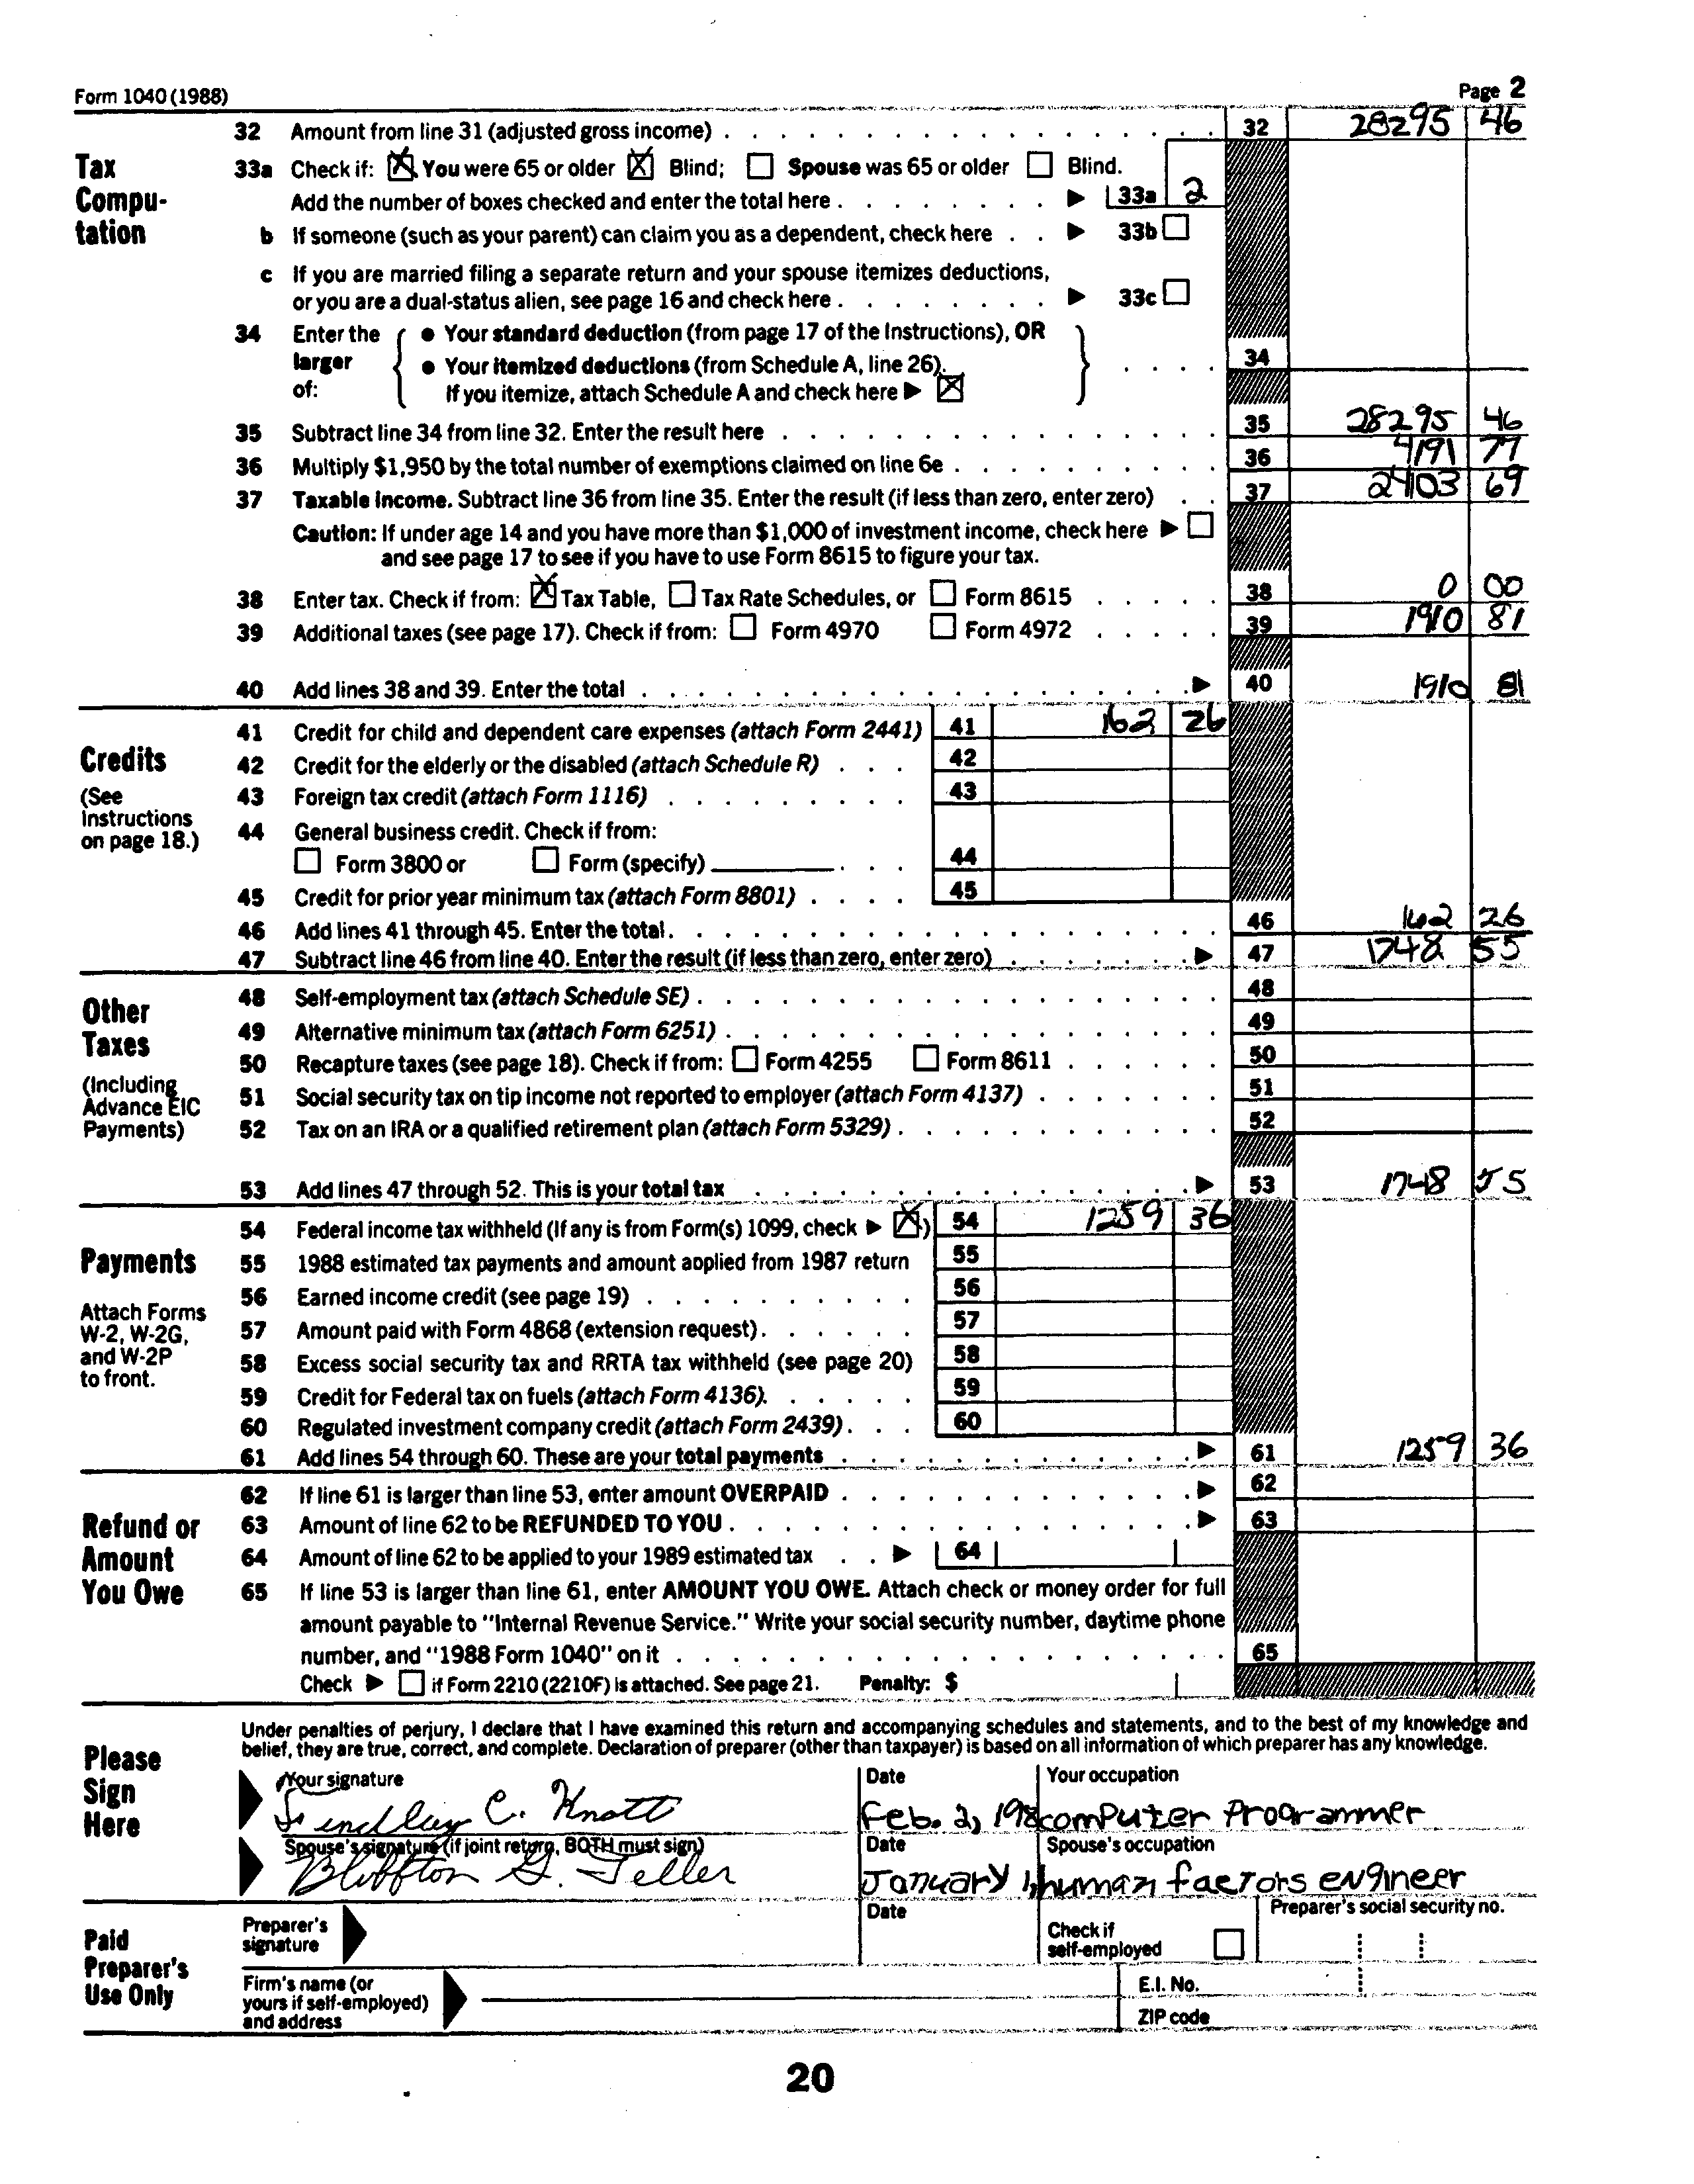 Form 1040 (1988) Page 2
32 Amount from line 31 (adjusted gross income) 32 28295 46
Tax Compu-tation
33a Check if: You were 65 or older Blind; Spouse was 65 or older Blind.
Add the number of boxes checked and enter the total here 33a 2
b If someone (such as your parent) can claim you as a dependent, check here 33b
c If you are married filing a separate return and your spouse itemizes deductions,
or you are a dual-status alien, see page 16 and check here 33c
34 Enter the larger of:
• Your standard deduction (from page 17 of the Instructions), OR
• Your itemized deductions (from Schedule A, line 26).
If you itemize, attach Schedule A and check here
34
35 Subtract line 34 from line 32. Enter the result here 35 28295 46
36 Multiply $1,950 by the total number of exemptions claimed on line 6e 36 4191 77
37 Taxable income. Subtract line 36 from line 35. Enter the result (if less than zero, enter zero) 37 24103 69
Caution: If under age 14 and you have more than $1,000 of investment income, check here
and see page 17 to see if you have to use Form 8615 to figure your tax.
38 Enter tax. Check if from: Tax Table, Tax Rate Schedules, or Form 8615 38 0 00
39 Additional taxes (see page 17). Check if from: Form 4970 Form 4972 39 1910 81
40 Add lines 38 and 39. Enter the total 40 1910 81
Credits
(See Instructions on page 18.)
41 Credit for child and dependent care expenses (attach Form 2441) 41 162 26
42 Credit for the elderly or the disabled (attach Schedule R) 42
43 Foreign tax credit (attach Form 1116) 43
44 General business credit. Check if from:
Form 3800 or Form (specify) 44
45 Credit for prior year minimum tax (attach Form 8801) 45
46 Add lines 41 through 45. Enter the total 46 162 26
47 Subtract line 46 from line 40. Enter the result (if less than zero, enter zero) 47 1748 55
Other Taxes
(Including Advance EIC Payments)
48 Self-employment tax (attach Schedule SE) 48
49 Alternative minimum tax (attach Form 6251) 49
50 Recapture taxes (see page 18). Check if from: Form 4255 Form 8611 50
51 Social security tax on tip income not reported to employer (attach Form 4137) 51
52 Tax on an IRA or a qualified retirement plan (attach Form 5329) 52
53 Add lines 47 through 52. This is your total tax 53 1748 55
Payments
Attach Forms W-2, W-2G, and W-2P to front.
54 Federal income tax withheld (If any is from Form(s) 1099, check ) 54 1259 36
55 1988 estimated tax payments and amount applied from 1987 return 55
56 Earned income credit (see page 19) 56
57 Amount paid with Form 4868 (extension request) 57
58 Excess social security tax and RRTA tax withheld (see page 20) 58
59 Credit for Federal tax on fuels (attach Form 4136) 59
60 Regulated investment company credit (attach Form 2439) 60
61 Add lines 54 through 60. These are your total payments 61 1259 36
Refund or Amount You Owe
62 If line 61 is larger than line 53, enter amount OVERPAID 62
63 Amount of line 62 to be REFUNDED TO YOU 63
64 Amount of line 62 to be applied to your 1989 estimated tax 64
65 If line 53 is larger than line 61, enter AMOUNT YOU OWE. Attach check or money order for full
amount payable to "Internal Revenue Service." Write your social security number, daytime phone
number, and "1988 Form 1040" on it 65
Check if Form 2210 (2210F) is attached. See page 21. Penalty: $
Please Sign Here
Under penalties of perjury, I declare that I have examined this return and accompanying schedules and statements, and to the best of my knowledge and
belief, they are true, correct, and complete. Declaration of preparer (other than taxpayer) is based on all information of which preparer has any knowledge.
Your signature Date Your occupation
Lindley C. Knott Feb. 2, 198 computer Programmer
Spouse's signature (if joint return, BOTH must sign) Date Spouse's occupation
Bluffton G. Teller January 1, human factors engineer
Paid Preparer's Use Only
Preparer's signature Date Check if self-employed Preparer's social security no.
Firm's name (or yours if self-employed) and address E.I. No.
ZIP code
20